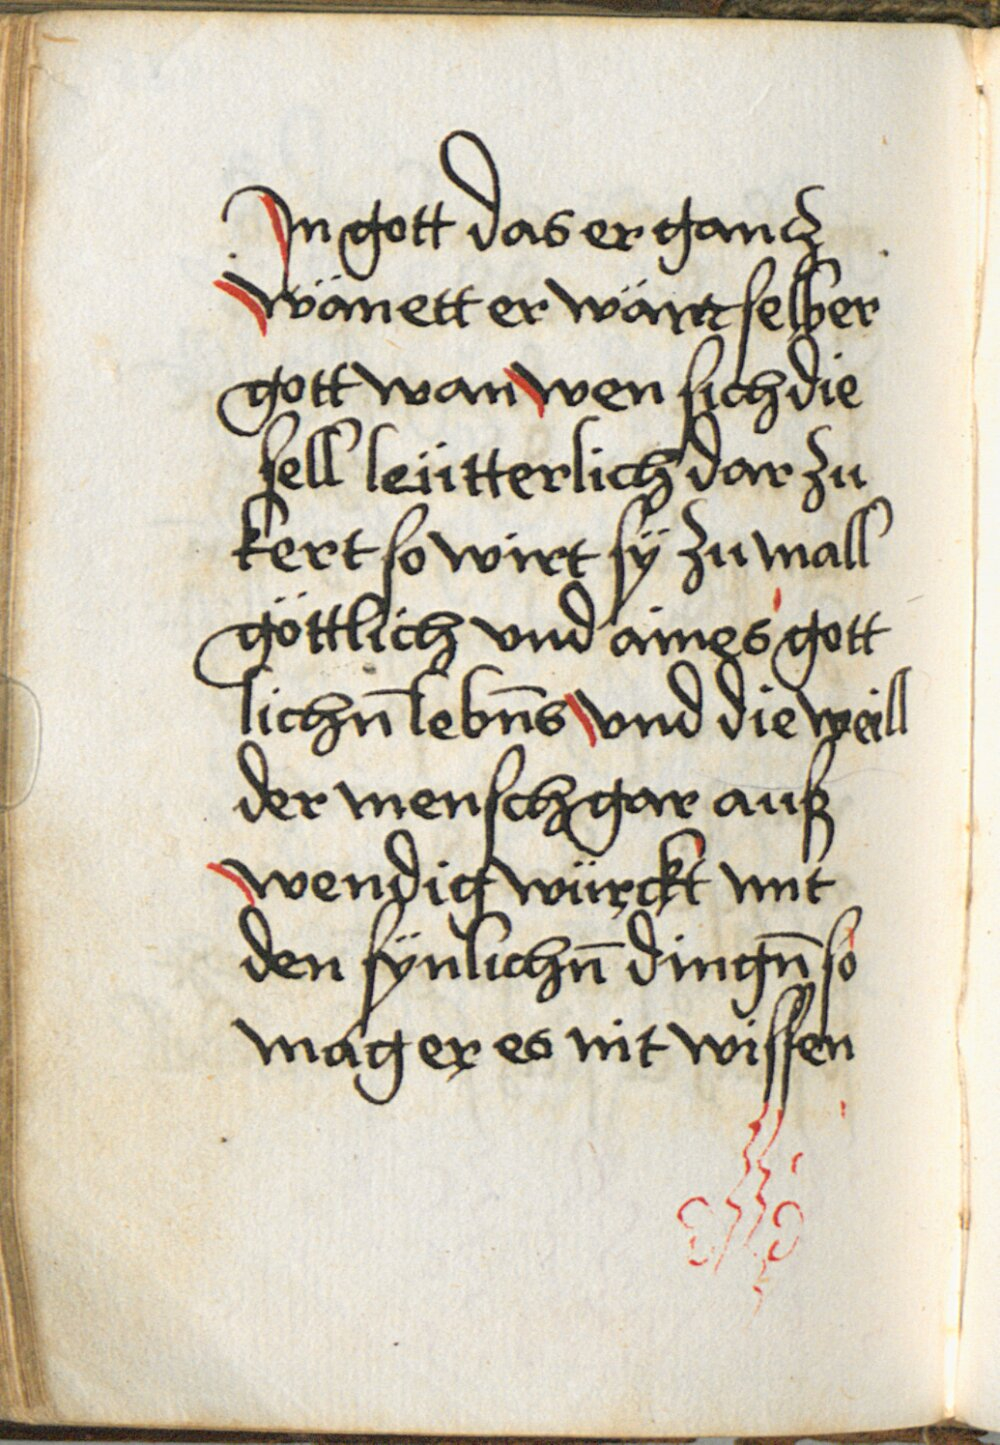 In gott das er gancz
wänett er wärtt selber
gott wan wen sich die
sell leütterlich dar zu
kert so wirt sÿ zu mall
göttlich vnd aines gott
lichn̄ lebn̄s vnd die weill
der mensch gar auß
wendig würckt mit
den sÿnlichn̄ dingn̄ so
mag er es nit wissen